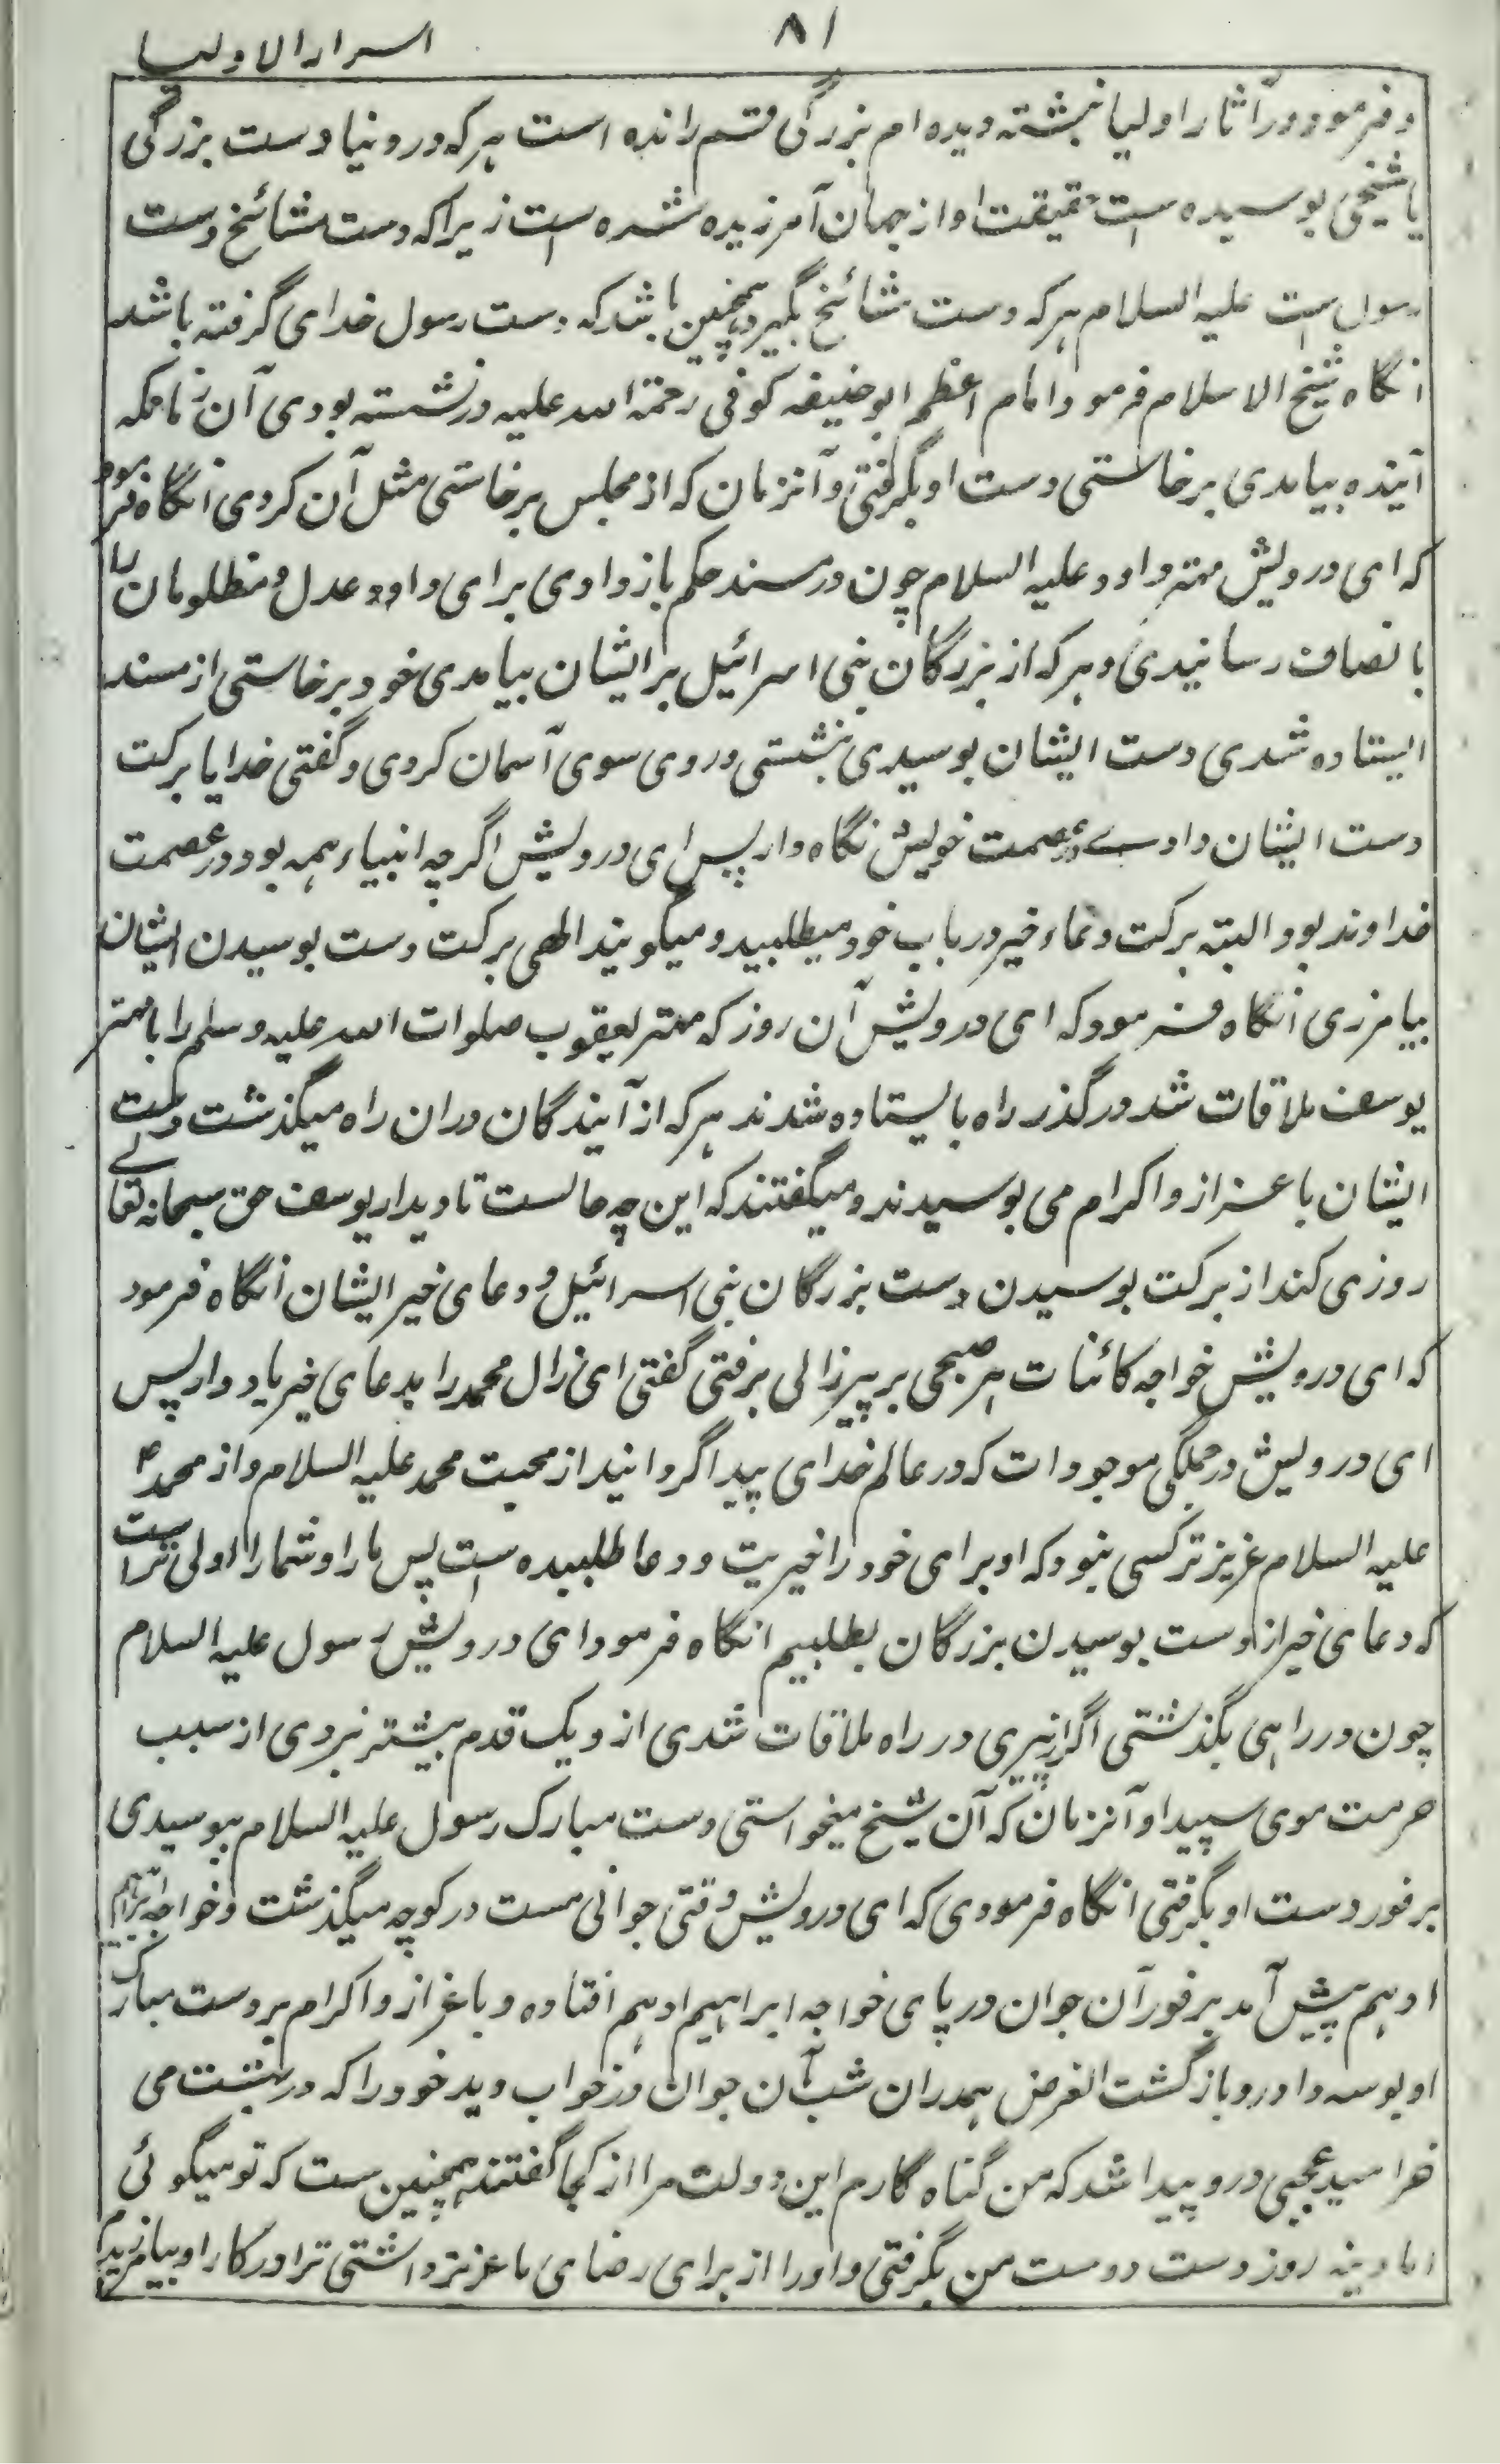 ۸۱
اسرار الاولیا
و فرمود در آثار اولیا نبشته دیده ام بزرگی قسم رانده است هر که در دنیا دست بزرگی
یا شیخی بوسیده است حقیقت او از جهان آمرزیده شده است زیرا که دست مشائخ دست
رسول است علیه السلام هر که دست مشائخ بگیرد همچنین باشد که دست رسول خدای گرفته باشد
انگاه شیخ الاسلام فرمود امام اعظم ابوحنیفه کوفی رحمة الله علیه در نشسته بودی آن زمانکه
آینده بیامدی برخاستی دست او بگرفتی و آنزمان که از مجلس برخاستی مثل آن کردی انگاه فرمود
که ای درویش مهتر داود علیه السلام چون در مسند حکم باز دادی برای داد و عدل و مظلومان را
بانصاف رسانیدی و هر که از بزرگان بنی اسرائیل بر ایشان بیامدی خود برخاستی از مسند
ایستاده شدی دست ایشان بوسیدی بنشستی و روی سوی آسمان کردی و گفتی خدایا برکت
دست ایشان داود را در عصمت خویش نگاه دار پس ای درویش اگرچه انبیاء همه بود در عصمت
خداوند بود البته برکت دعاء خیر در باب خود میطلبید و میگویند الهی برکت دست بوسیدن ایشان
بیامرزی انگاه فرمود که ای درویش آن روز که مهتر یعقوب صلوات الله علیه وسلم را با مهتر
یوسف ملاقات شد در گذر راه بایستاده شدند هر که از آیندگان دران راه میگذشت دست
ایشان باعزاز و اکرام می بوسیدند و میگفتند که این چه حالست تا دیدار یوسف حق سبحانه تعالے
روزی کند از برکت بوسیدن دست بزرگان بنی اسرائیل و دعای خیر ایشان انگاه فرمود
که ای درویش خواجه کائنات هر صبحی بر پیرزالی برفتی گفتی ای زال محمد را بدعای خیر یاد دار پس
ای درویش در جملگی موجودات که در عالم خدای پیدا گردانید از محبت محمد علیه السلام و از محمد
علیه السلام عزیزتر کسی نبود که او برای خود را خیریت و دعا طلبیده است پس ما را و شما را اولی تر است
که دعای خیر از دست بوسیدن بزرگان بطلبیم انگاه فرمود ای درویش رسول علیه السلام
چون در راهی بگذشتی اگر از پیری در راه ملاقات شدی از و یک قدم بیشتر نبردی از سبب
حرمت موی سپید او آنزمان که آن شیخ میخواستی دست مبارک رسول علیه السلام ببوسیدی
بر فور دست او بگرفتی انگاه فرمودی که ای درویش وقتی جوانی مست در کوچه میگذشت و خواجه ابراهیم
ادهم پیش آمد بر فور آن جوان در پای خواجه ابراهیم ادهم افتاده و باعزاز و اکرام بر دست مبارک
او بوسه داد و بازگشت الغرض همدران شب آن جوان در خواب دید خود را که در بهشت می
خرامید عجبی درو پیدا شد که من گناه گارم این دولت مرا از کجا گفتند همچنین ست که تو میگوئی
اما دینه روز دست دوست من بگرفتی و او را از برای رضای ما عزیز داشتی ترا در کار او بیامرزیدم